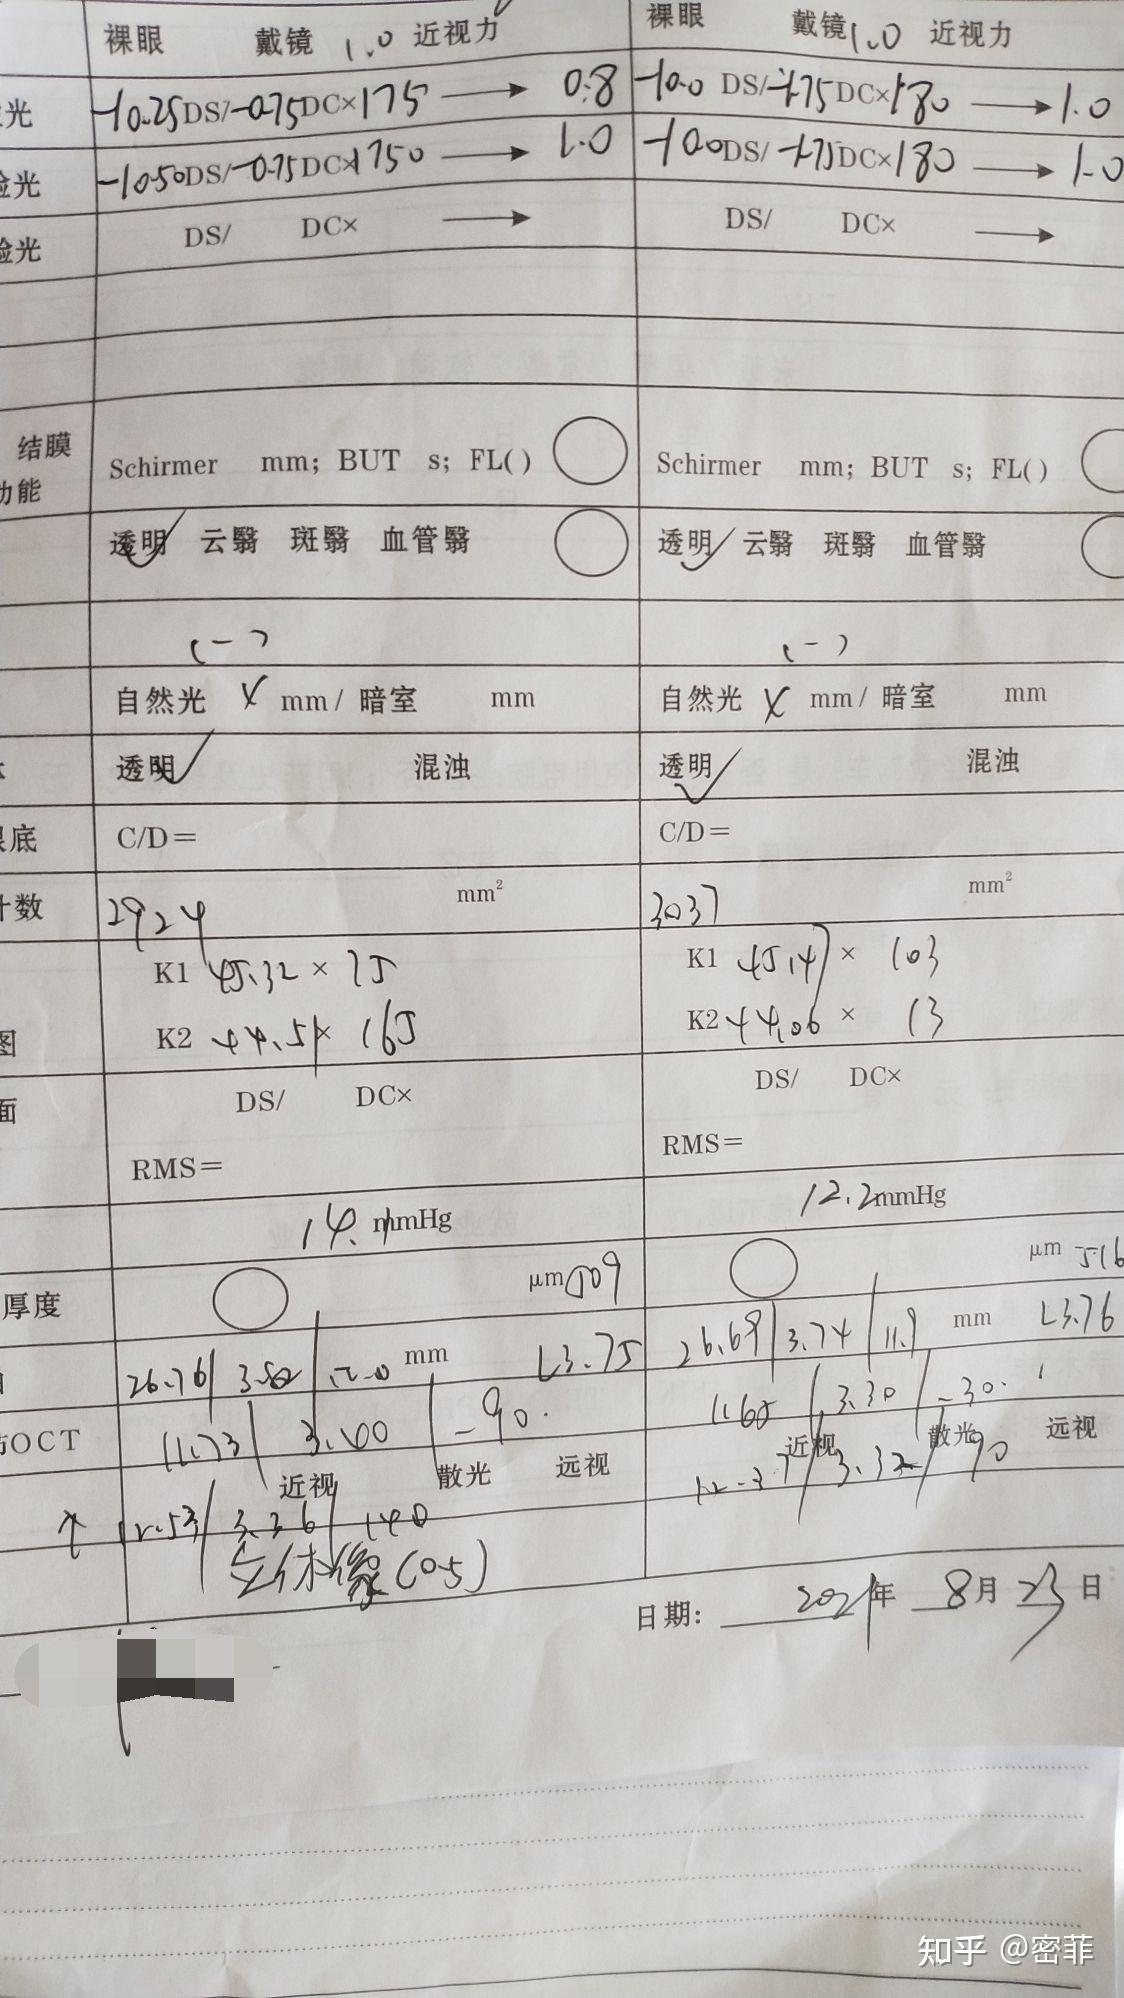 裸眼 戴镜 1.0 近视力 裸眼 戴镜 1.0 近视力
光 -10.25DS/-0.75DC×175 → 0.8 -10.0 DS/-1.75DC×180 → 1.0
验光 -10.50DS/-0.75DC×1750 → 1.0 -10.0DS/-1.75DC×180 → 1.0
验光 DS/ DC× → DS/ DC× →
结膜
功能 Schirmer mm; BUT s; FL( ) Schirmer mm; BUT s; FL( )
透明✓ 云翳 斑翳 血管翳 透明✓ 云翳 斑翳 血管翳
(-) (-)
自然光 mm / 暗室 mm 自然光 mm / 暗室 mm
透明✓ 混浊 透明✓ 混浊
眼底 C/D= C/D=
计数 2924 mm² 3037 mm²
K1 45.32 × 75 K1 45.147 × 103
图 K2 44.51× 165 K2 44.06 × 13
面 DS/ DC× DS/ DC×
RMS= RMS=
14.1mmHg 12.2mmHg
厚度 μm 509 μm 516
26.76/ 3.50/ 12.0 mm L3.75 26.69/ 3.74/ 11.9 mm L3.76
OCT 11.73/ 3.60 / -90. 11.65/ 3.30/ -30.
近视 散光 远视 近视 散光 远视
↑ 12.53/ 3.36/ 140 /3.32/ 90
立体像(0.5)
日期: 2021年 8月 23日
知乎 @密菲